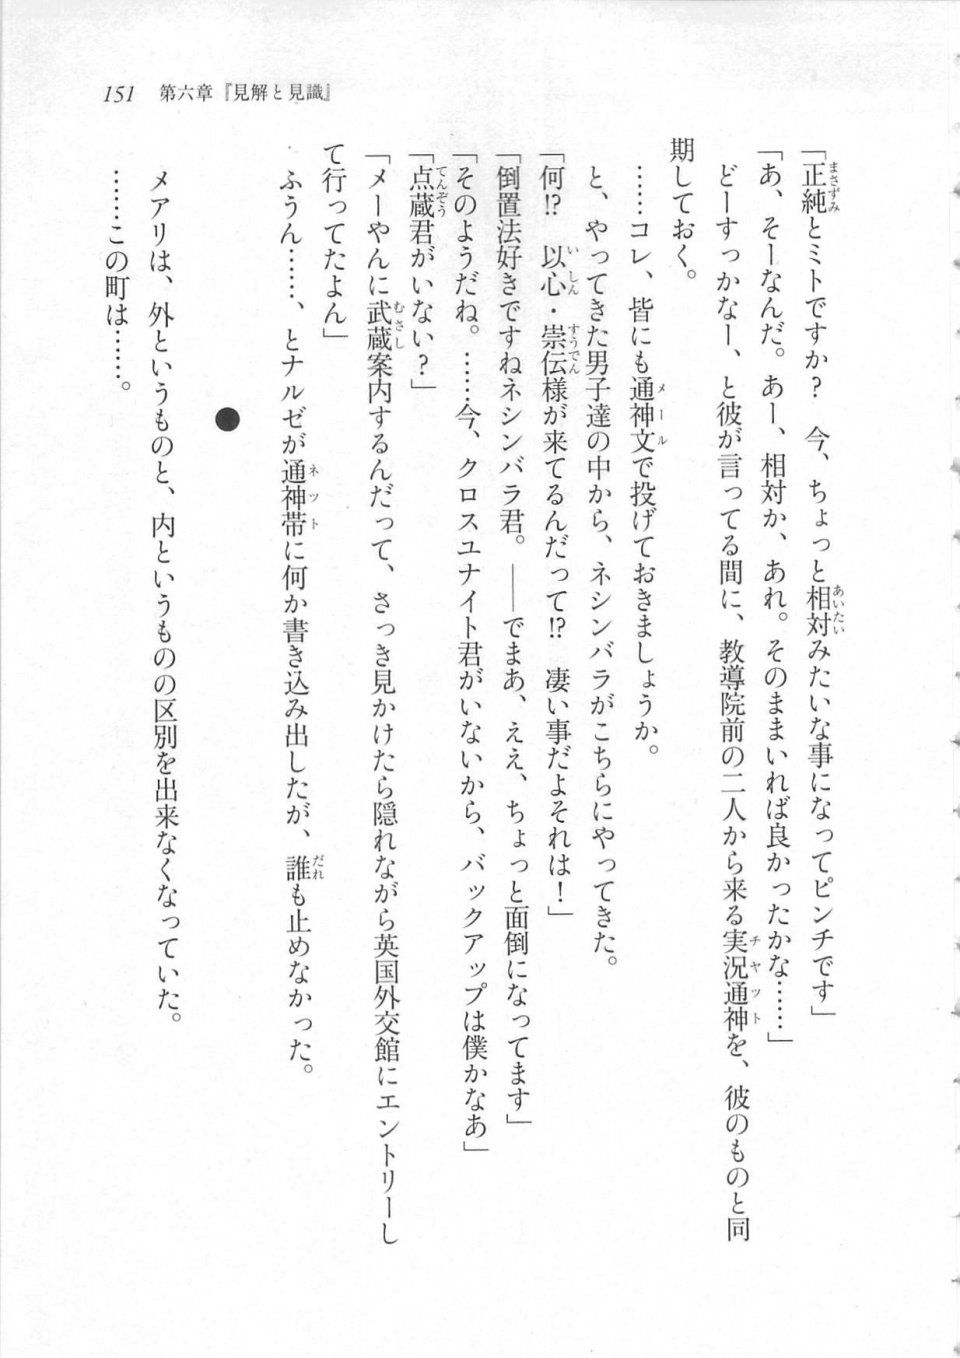 151　第六章『見解と見識』
「正純とミトですか？　今、ちょっと相対みたいな事になってピンチです」
「あ、そーなんだ。あー、相対か、あれ。そのままいれば良かったかな……」
どーすっかなー、と彼が言ってる間に、教導院前の二人から来る実況通神を、彼のものと同
期しておく。
……コレ、皆にも通神文で投げておきましょうか。
と、やってきた男子達の中から、ネシンバラがこちらにやってきた。
「何!?　以心・崇伝様が来てるんだって!?　凄い事だよそれは！」
「倒置法好きですねネシンバラ君。――でまあ、ええ、ちょっと面倒になってます」
「そのようだね。……今、クロスユナイト君がいないから、バックアップは僕かなあ」
「点蔵君がいない？」
「メーやんに武蔵案内するんだって、さっき見かけたら隠れながら英国外交館にエントリーし
て行ってたよん」
ふうん……、とナルゼが通神帯に何か書き込み出したが、誰も止めなかった。
●
メアリは、外というものと、内というものの区別を出来なくなっていた。
……この町は……。